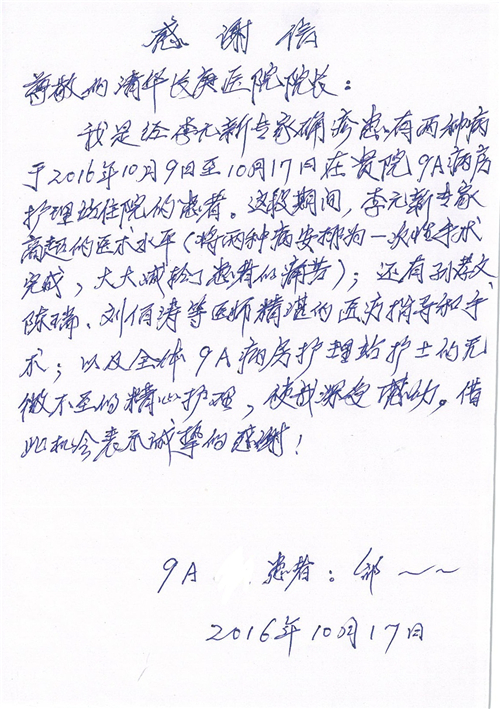 感谢信
尊敬的清华长庚医院院长：
我是经李元新专家确诊患有两种病
于2016年10月9日至10月17日在贵院9A病房
护理站住院的患者。这段期间，李元新专家
高超的医术水平（将两种病安排为一次性手术
完成，大大减轻了患者的痛苦）；还有孙孝文
陈瑞、刘伯涛等医师精湛的医疗指导和手
术；以及全体9A病房护理站护士的无
微不至的精心护理，使我深受感动。借
此机会表示诚挚的感谢！
9A 患者：邹～～
2016年10月17日